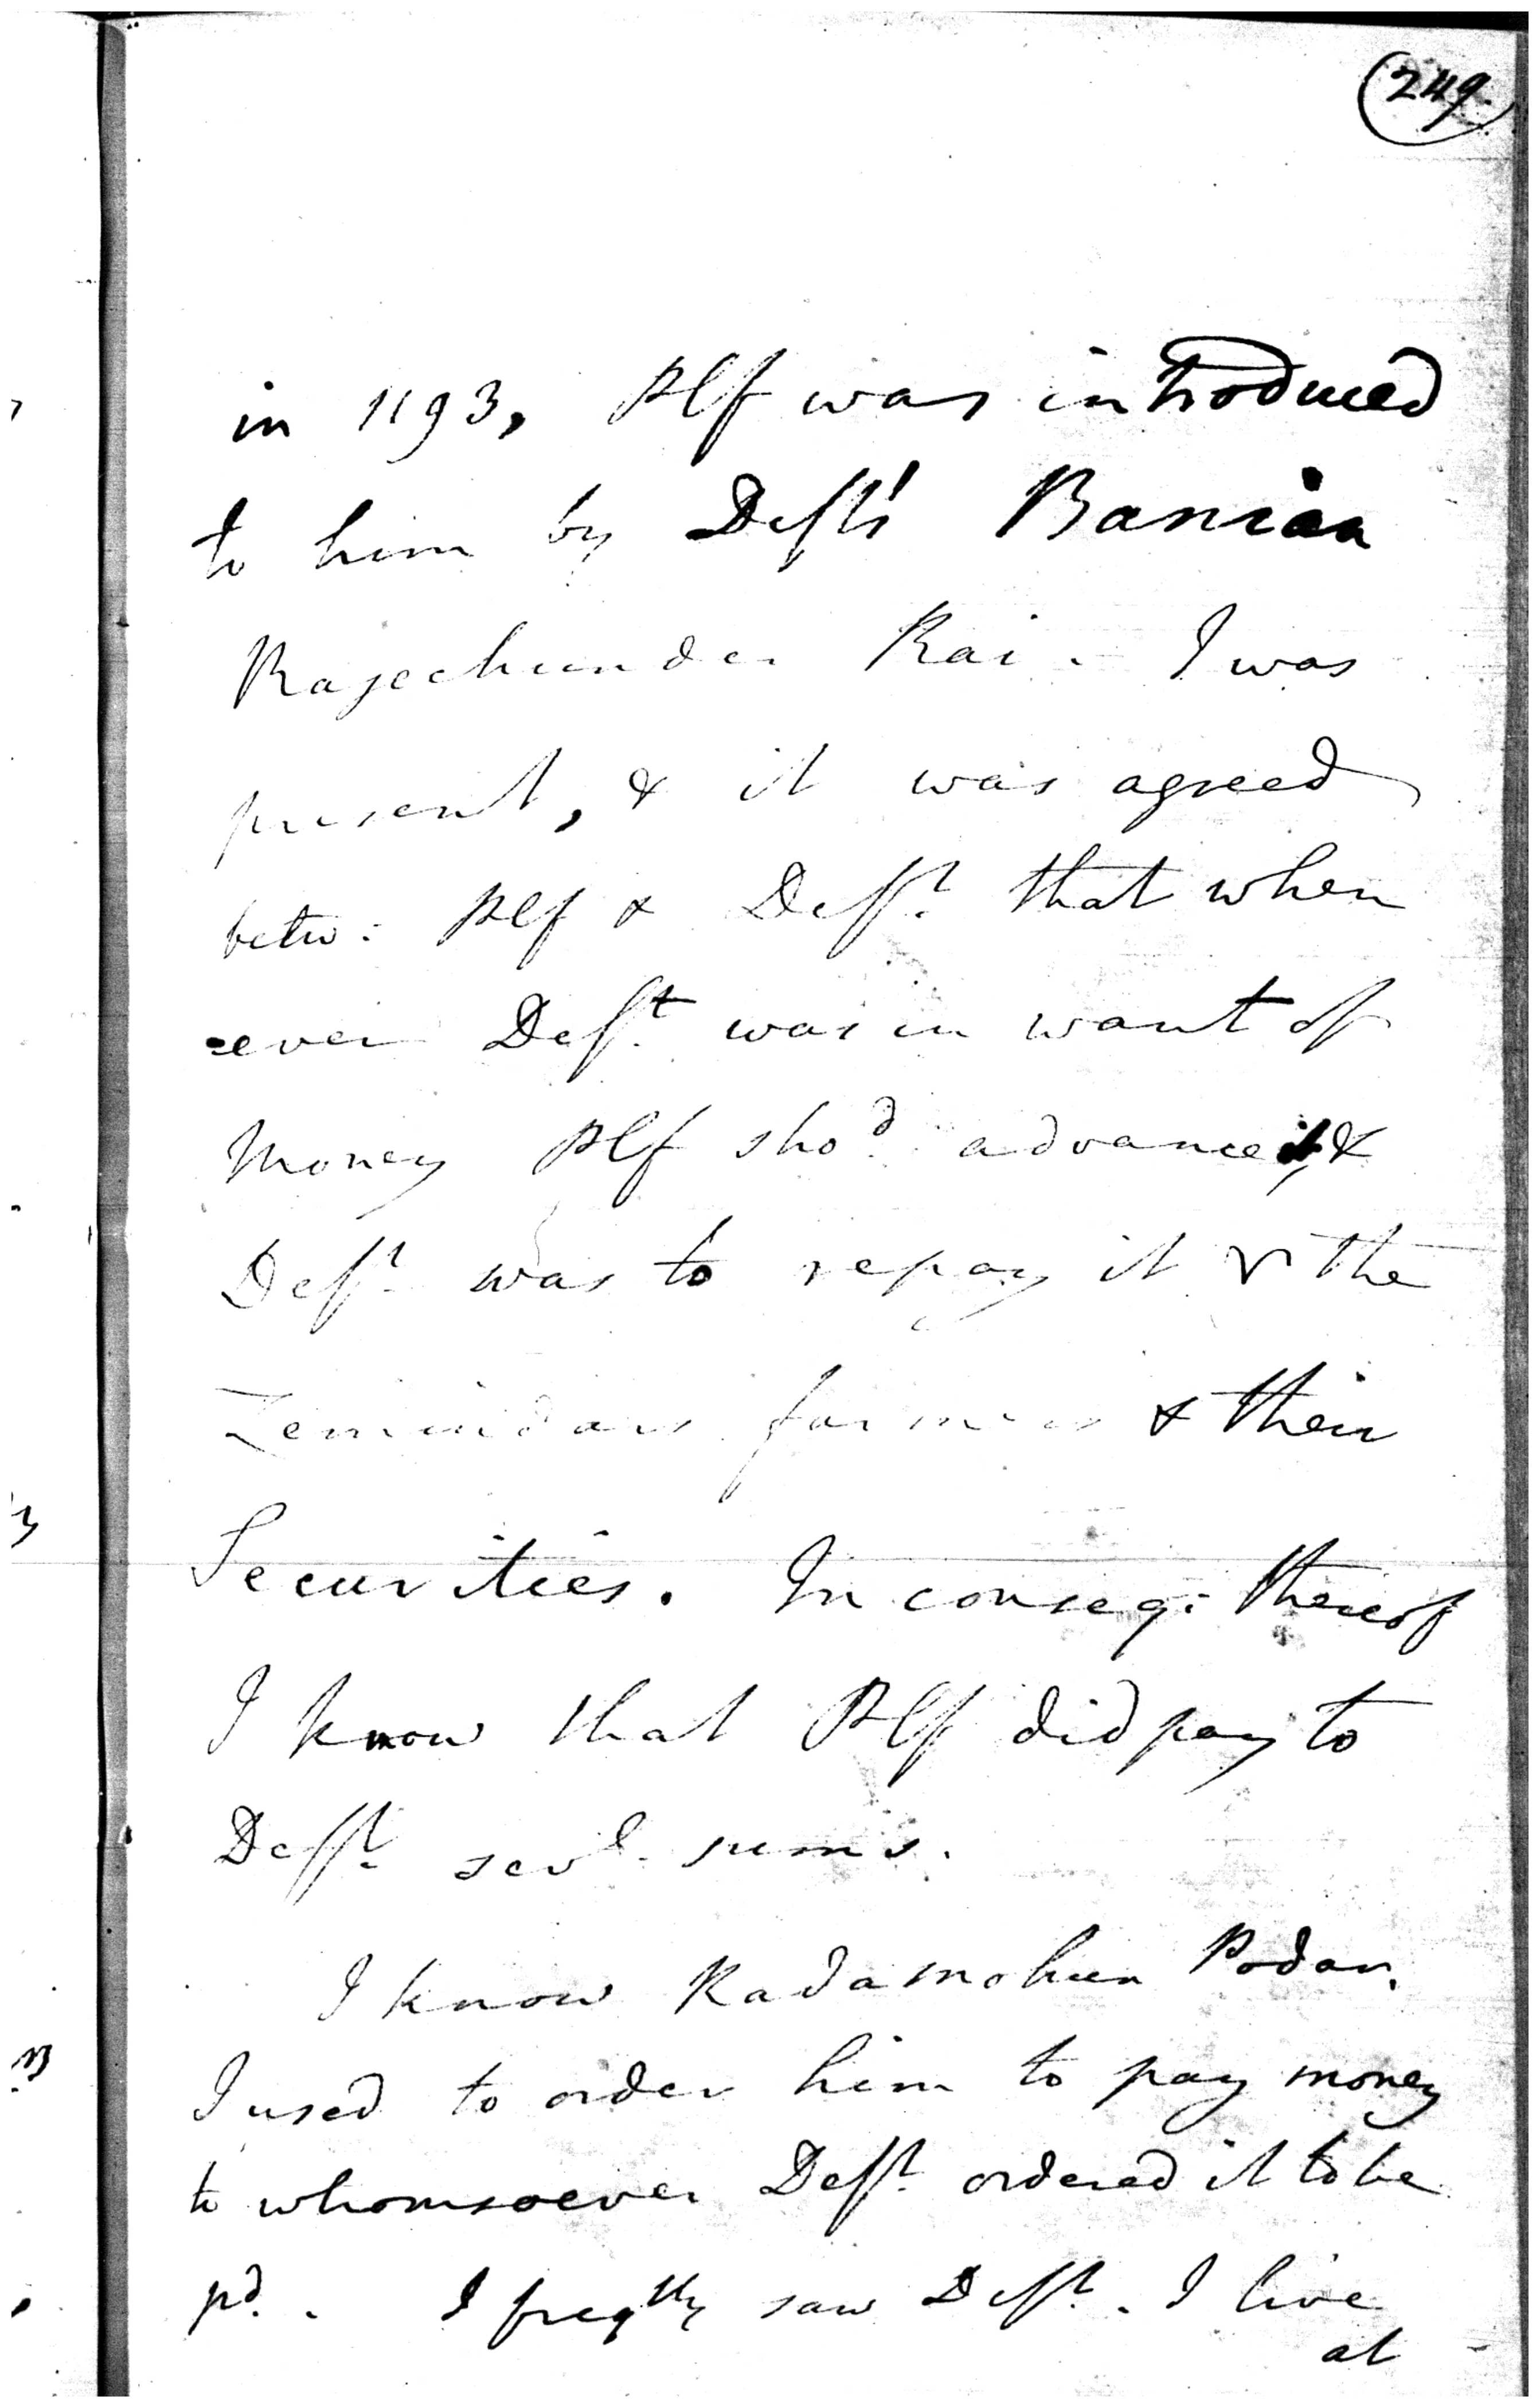 249.
in 1193, Plf was introduced
to him by Defts' Banian
Rajechunder Rai. I was
present, & it was agreed
betw: Plf & Deft. that when
=ever Deft. was in want of
Money Plf shod. advance it, &
Deft. was to repay it & the
Zemindars farmers & their
Securities. In conseq: thereof
I know that Plf did pay to
Deft. sevl. sums.
I know Radamohun Podar.
I used to order him to pay money
to whomsoever Deft. ordered it to be
pd.. I freqtly saw Deft.. I live
at